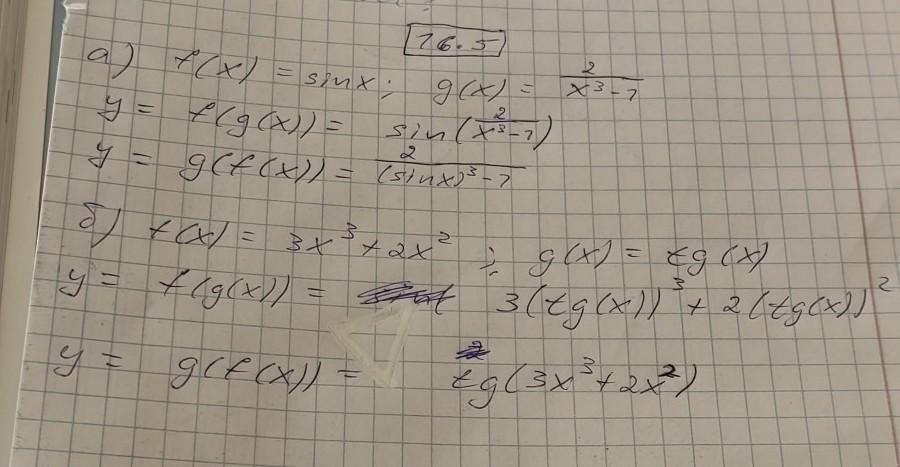 16.5
а) f(x) = sinx; g(x) = 2/(x³-1)
y = f(g(x)) = sin(2/(x³-1))
y = g(f(x)) = 2/((sinx)³-1)
б) f(x) = 3x³+2x² ; g(x) = tg(x)
y = f(g(x)) = 3(tg(x))³ + 2(tg(x))²
y = g(f(x)) = tg(3x³+2x²)